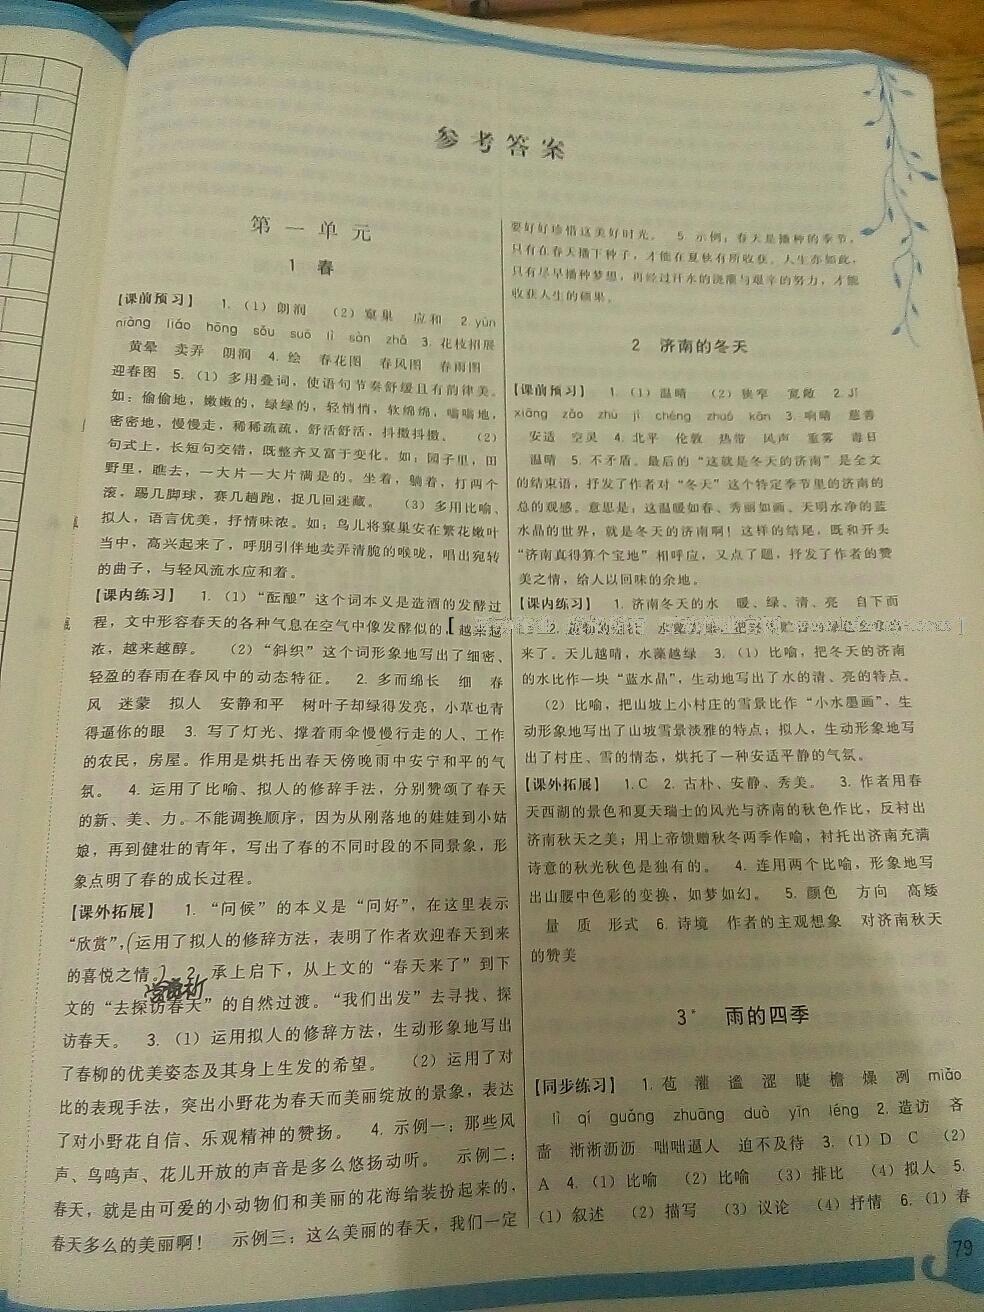 参考答案
第一单元
1 春
【课前预习】 1.（1）朗润 （2）窠巢 应和 2.yùn
niàng liáo hōng sǒu suō lì sàn zhǎ 3. 花枝招展
黄晕 卖弄 朗润 4. 绘 春花图 春风图 春雨图
迎春图 5.（1）多用叠词，使语句节奏舒缓且有韵律美。
如：偷偷地，嫩嫩的，绿绿的，轻悄悄，软绵绵，嗡嗡地，
密密地，慢慢走，稀稀疏疏，舒活舒活，抖擞抖擞。 （2）
句式上，长短句交错，既整齐又富于变化。如：园子里，田
野里，瞧去，一大片一大片满是的。坐着，躺着，打两个
滚，踢几脚球，赛几趟跑，捉几回迷藏。 （3）多用比喻、
拟人，语言优美，抒情味浓。如：鸟儿将窠巢安在繁花嫩叶
当中，高兴起来了，呼朋引伴地卖弄清脆的喉咙，唱出宛转
的曲子，与轻风流水应和着。
【课内练习】 1.（1）“酝酿”这个词本义是造酒的发酵过
程，文中形容春天的各种气息在空气中像发酵似的，越来越
浓，越来越醇。 （2）“斜织”这个词形象地写出了细密、
轻盈的春雨在春风中的动态特征。 2. 多而绵长 细 春
风 迷蒙 拟人 安静和平 树叶子却绿得发亮，小草也青
得逼你的眼 3. 写了灯光、撑着雨伞慢慢行走的人、工作
的农民，房屋。作用是烘托出春天傍晚雨中安宁和平的气
氛。 4. 运用了比喻、拟人的修辞手法，分别赞颂了春天
的新、美、力。不能调换顺序，因为从刚落地的娃娃到小姑
娘，再到健壮的青年，写出了春的不同时段的不同景象，形
象点明了春的成长过程。
【课外拓展】 1.“问候”的本义是“问好”，在这里表示
“欣赏”，（运用了拟人的修辞方法，表明了作者欢迎春天到来
的喜悦之情。） 2. 承上启下，从上文的“春天来了”到下
文的“去探访春天”的自然过渡。“我们出发”去寻找、探
访春天。 3.（1）运用拟人的修辞方法，生动形象地写出
了春柳的优美姿态及其身上生发的希望。 （2）运用了对
比的表现手法，突出小野花为春天而美丽绽放的景象，表达
了对小野花自信、乐观精神的赞扬。 4. 示例一：那些风
声、鸟鸣声、花儿开放的声音是多么悠扬动听。 示例二：
春天，就是由可爱的小动物们和美丽的花海给装扮起来的，
春天多么的美丽啊！ 示例三：这么美丽的春天，我们一定
要好好珍惜这美好时光。 5. 示例：春天是播种的季节，
只有在春天播下种子，才能在夏秋有所收获。人生亦如此，
只有尽早播种梦想，再经过汗水的浇灌与艰辛的努力，才能
收获人生的硕果。
2 济南的冬天
【课前预习】 1.（1）温晴 （2）狭窄 宽敞 2.Jǐ
xiāng zǎo zhù jì chéng zhuó kān 3. 响晴 慈善
安适 空灵 4. 北平 伦敦 热带 风声 重雾 毒日
温晴 5. 不矛盾。最后的“这就是冬天的济南”是全文
的结束语，抒发了作者对“冬天”这个特定季节里的济南的
总的观感。意思是：这温暖如春、秀丽如画、天明水净的蓝
水晶的世界，就是冬天的济南啊！这样的结尾，既和开头
“济南真得算个宝地”相呼应，又点了题，抒发了作者的赞
美之情，给人以回味的余地。
【课内练习】 1. 济南冬天的水 暖、绿、清、亮 自下而
来了。天儿越晴，水藻越绿 3.（1）比喻，把冬天的济南
的水比作一块“蓝水晶”，生动地写出了水的清、亮的特点。
（2）比喻，把山坡上小村庄的雪景比作“小水墨画”，生
动形象地写出了山坡雪景淡雅的特点；拟人，生动形象地写
出了村庄、雪的情态，烘托了一种安适平静的气氛。
【课外拓展】 1.C 2. 古朴、安静、秀美。 3. 作者用春
天西湖的景色和夏天瑞士的风光与济南的秋色作比，反衬出
济南秋天之美；用上帝馈赠秋冬两季作喻，衬托出济南充满
诗意的秋光秋色是独有的。 4. 连用两个比喻，形象地写
出山腰中色彩的变换，如梦如幻。 5. 颜色 方向 高矮
量 质 形式 6. 诗境 作者的主观想象 对济南秋天
的赞美
3* 雨的四季
【同步练习】 1. 苞 灌 谧 涩 睫 檐 燥 冽 miǎo
lì qí guǎng zhuāng duò yīn léng 2. 造访 吝
啬 淅淅沥沥 咄咄逼人 迫不及待 3.（1）D C （2）
A 4.（1）比喻 （2）比喻 （3）排比 （4）拟人 5.
（1）叙述 （2）描写 （3）议论 （4）抒情 6.（1）春
79